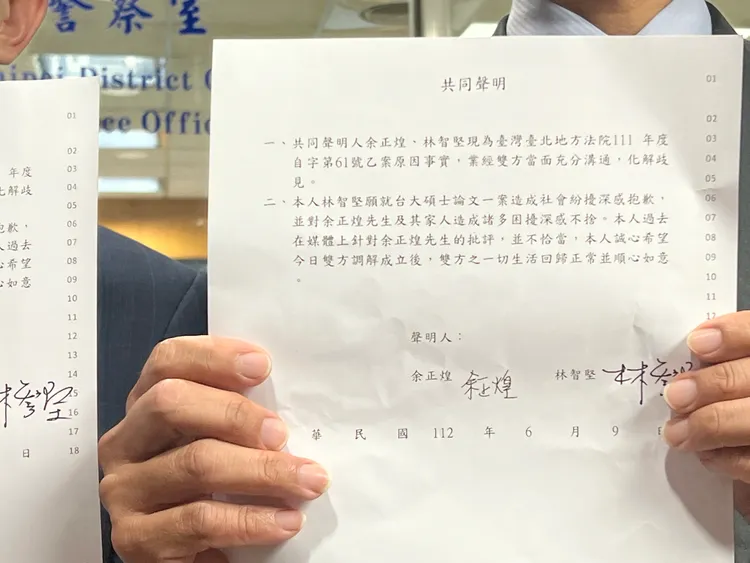 警察室
Taipei District C
ce Offic
01
02
年度 03
解歧 04
05
06
抱歉， 07
過去 08
心希望 09
心如意 10
11
12
13
14
15
16
17
日 18
林智堅
共同聲明
01
02
一、共同聲明人余正煌、林智堅現為臺灣臺北地方法院111 年度 03
自字第61號乙案原因事實，業經雙方當面充分溝通，化解歧 04
見。 05
二、本人林智堅願就台大碩士論文一案造成社會紛擾深感抱歉， 06
並對余正煌先生及其家人造成諸多困擾深感不捨。本人過去 07
在媒體上針對余正煌先生的批評，並不恰當，本人誠心希望 08
今日雙方調解成立後，雙方之一切生活回歸正常並順心如意 09
。 10
11
12
聲明人：
余正煌 余正煌 林智堅 林智堅
華 民 國 112 年 6 月 9 日